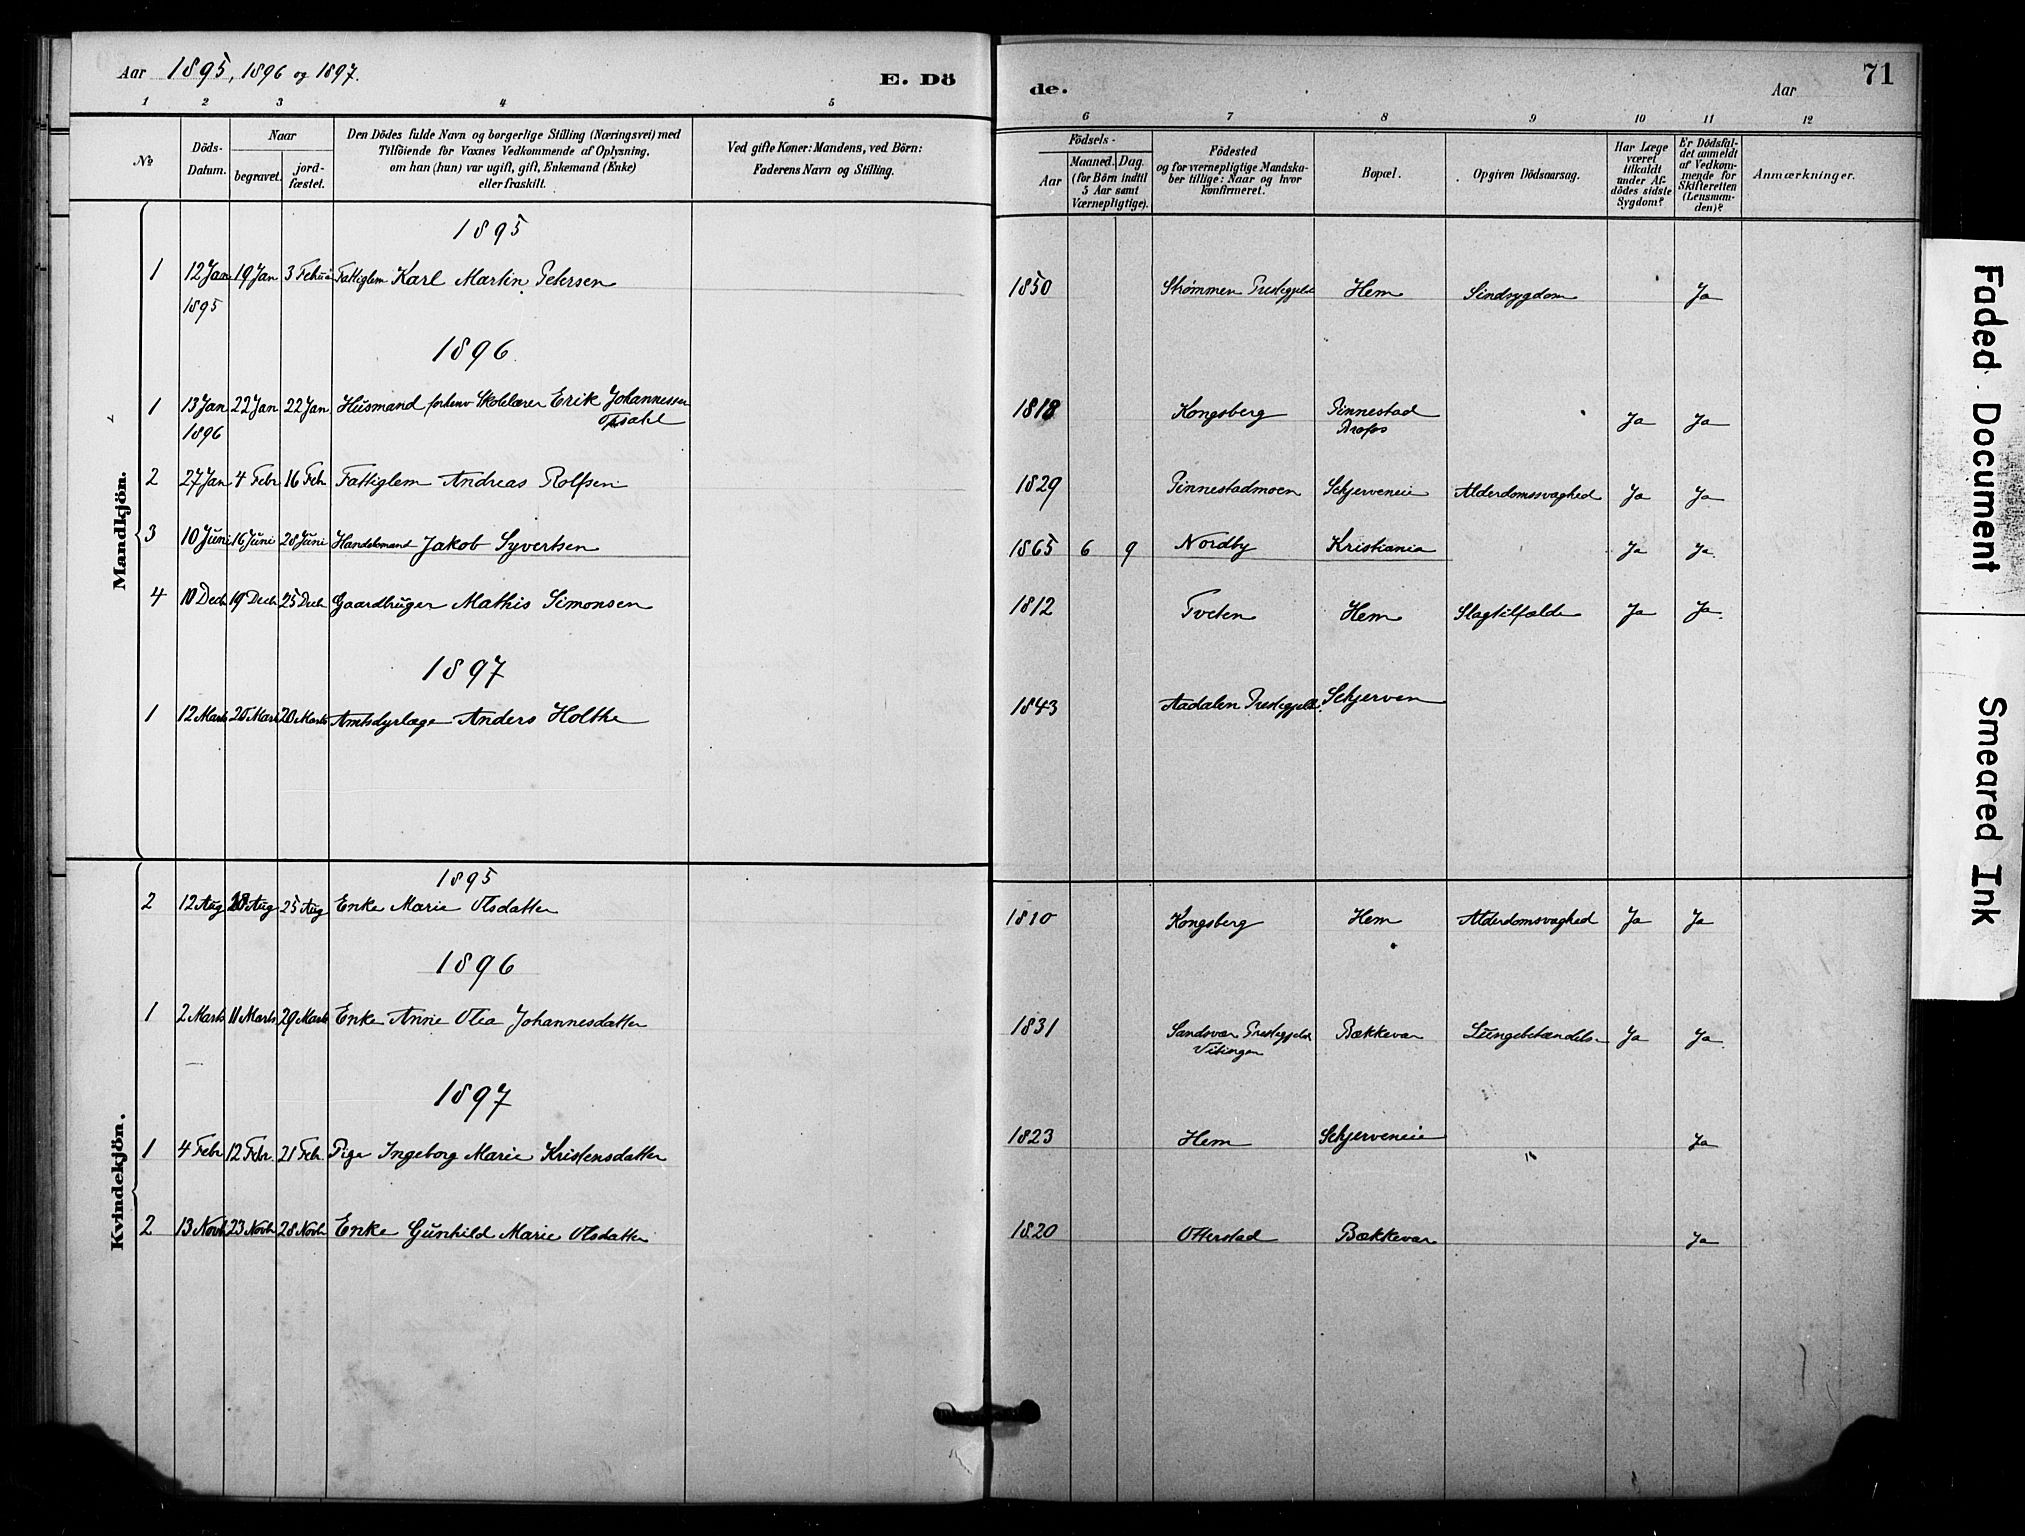 Aar 1895, 1896 og 1897.
E. Dö
de.
Aar
71
1 2 3 4 5 6 7 8 9 10 11 12
No
Döds-Datum.
Naar
begravet.
jord-fæstet.
Den Dödes fulde Navn og borgerlige Stilling (Næringsvei) med
Tilföiende for Voxnes Vedkommende af Oplysning,
om han (hun) var ugift, gift, Enkemand (Enke)
eller fraskilt.
Ved gifte Koner: Mandens, ved Börn:
Faderens Navn og Stilling.
Födsels-
Aar
Maaned. Dag.
(for Börn indtil
5 Aar samt
Værnepligtige).
Födested
og for værnepligtige Mandska-
ber tillige: Naar og hvor
konfirmeret.
Bopæl.
Opgiven Dödsaarsag.
Har Læge
været
tilkaldt
under Af-
dödes sidste
Sygdom?
Er Dödsfal-
det anmeldt
af Vedkom-
mende for
Skifteretten
(Lensman-
den)?
Anmærkninger.
Mandkjön.
1895
1 12 Jan 19 Jan 3 Fattiglem Karl Martin Petersen 1850 Strømmen Prestegjeld Hem Sindsygdom Ja
1895
1896.
1 13 Jan 22 Jan 22 Jan Husmand forhenv Skolelærer Erik Johannessen 1818 Kongsberg Pinnestad Ja Ja
1896
2 27 Jan 4 Febr 16 Feb Fattiglem Andreas Rolfsen 1829 Pinnestadmoen Schjerveneie Alderdomssvaghed Ja Ja
3 10 Juni 16 Juni 28 Juni Handelsmand Jakob Syvertsen 1865 6 9 Nordby Kristiania Ja Ja
4 10 Decb 19 Decb 25 Decb Gaardbruger Mathis Simonsen 1812 Tveten Hem Slagtilfælde Ja Ja
1897
1 12 Marts 20 Marts 20 Marts Amtsdyrlæge Anders Holthe 1843 Aadalen Prestegjeld Schjerven
Kvindekjön.
1895
2 12 Aug Aug 25 Aug Enke Marie Olsdatter 1810 Kongsberg Hem Alderdomsvaghed Ja Ja
1896
1 2 Marts 11 Marts 29 Marts Enke Anne Olea Johannesdatter 1831 Sandsvær Prestegjeld Bækkevar Lungebetændelse Ja Ja
1897
1 4 Febr 12 Febr. 21 Feb. Pige Ingeborg Marie Kristensdatter 1823 Hem Schjerveneie Ja
2 13 Novb 23 Novb 28 Novb Enke Gunhild Marie Olsdatter 1820 Otterstad Bækkevar Ja
Faded Document
Smeared Ink